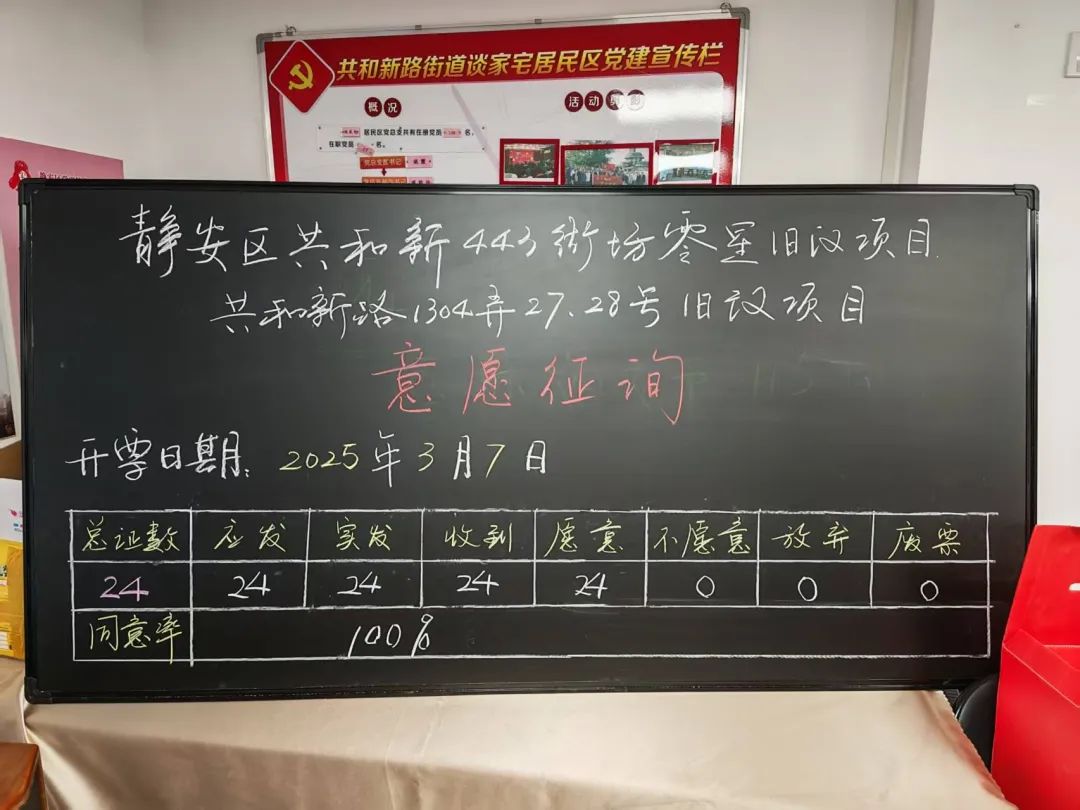 共和新路街道谈家宅居民区党建宣传栏
概况
活动剪影
居民区党总支共有在册党员
名。
在职党员
名。
党总支书记
静安区共和新443街坊零星旧改项目
共和新路1304弄27、28号旧改项目
意愿征询
开票日期:2025年3月7日
总证数 应发 实发 收到 愿意 不愿意 放弃 废票
24 24 24 24 24 0 0 0
同意率 100%